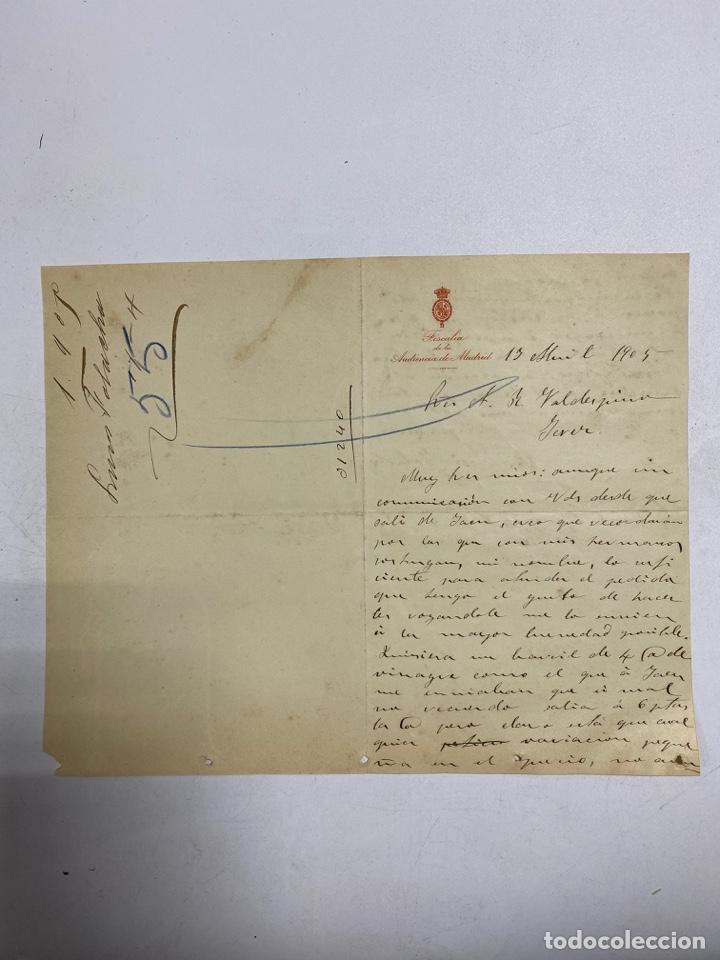 Fiscalía
de la
Audiencia de Madrid 13 Abril 1905
Valdespino
Jerez.
Muy Sres mios: aunque sin
comunicación con Vds desde que
salí de Jaen, creo que recordarán
por las que con mis hermanos
sostengan, mi nombre, lo sufi
ciente para atender el pedido
que tengo el gusto de hacer
les rogandole me lo envien
á la mayor brevedad posible.
Quisiera un barril de 4 @ de
vinagre como el que á Jaen
me enviaban que si mal
no recuerdo salia á 6 ptas
la @ pero claro está que cual
quier variacion peque
ña en el precio, no
55
4
01240
todocoleccion
todocoleccion.net